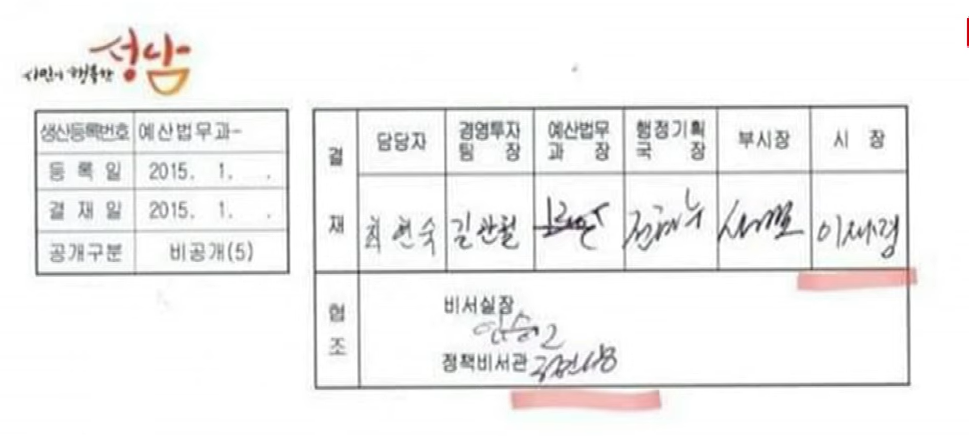 시민이 행복한 성남
생산등록번호 예산법무과-
등 록 일 2015. 1. .
결 재 일 2015. 1. .
공개구분 비공개(5)
결 재
담당자
경영투자팀 장
예산법무과 장
행정기획국 장
부시장
시 장
최현숙
이재명
협 조
비서실장
정책비서관